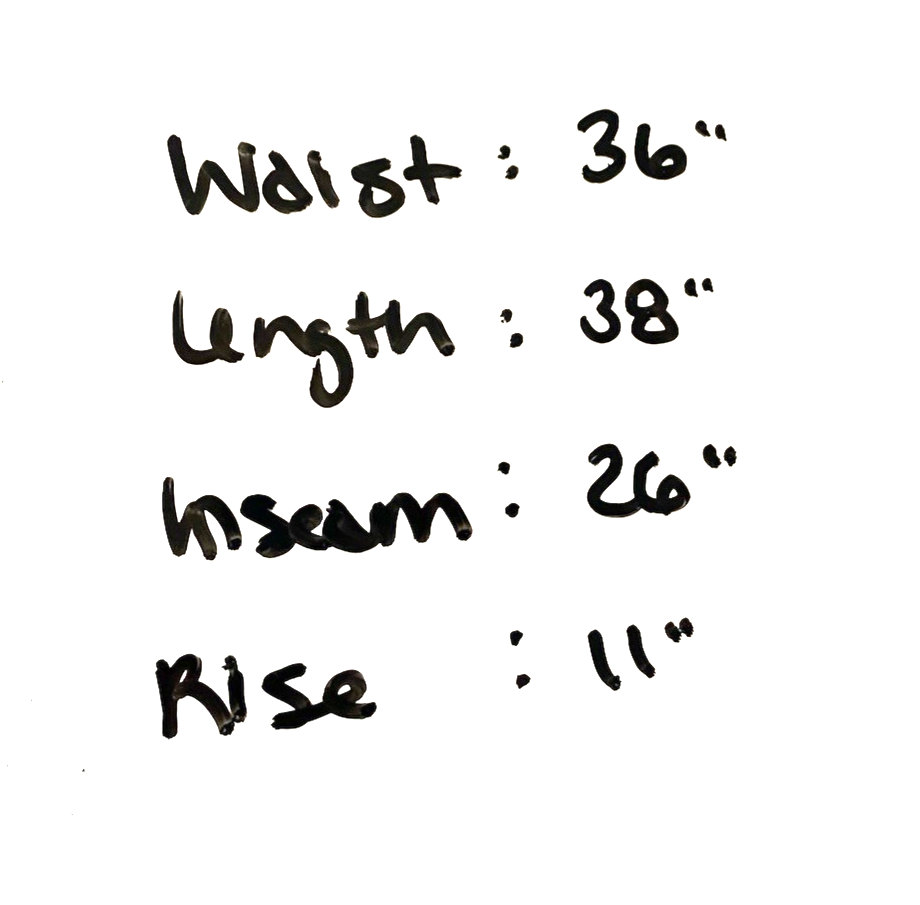 Waist : 36"
Length : 38"
Inseam : 26"
Rise : 11"